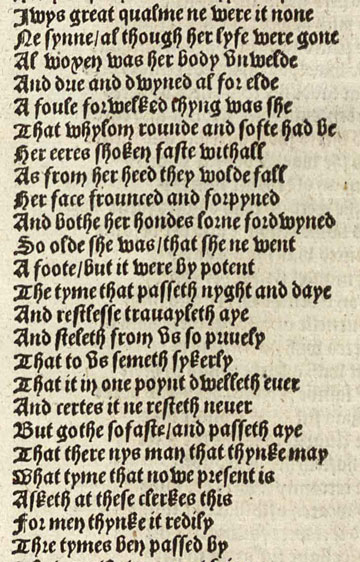 Iwys great qualme ne were it none
Ne synne/al though her lyfe were gone
Al woxen was her body vnwelde
And drie and dwyned al for elde
A foule forwelked thyng was she
That whylom rounde and softe had be
Her eeres shoken faste withall
As from her heed they wolde fall
Her face frounced and forpyned
And bothe her hondes lorne fordwyned
So olde she was/that she ne went
A foote/but it were by potent
The tyme that passeth nyght and daye
And restlesse trauayleth aye
And steleth from vs so priuely
That to vs semeth sykerly
That it in one poynt dwelleth euer
And certes it ne resteth neuer
But gothe so faste/and passeth aye
That there nys man that thynke may
What tyme that nowe present is
Asketh at these clerkes this
For men thynke it redily
Thre tymes ben passed by